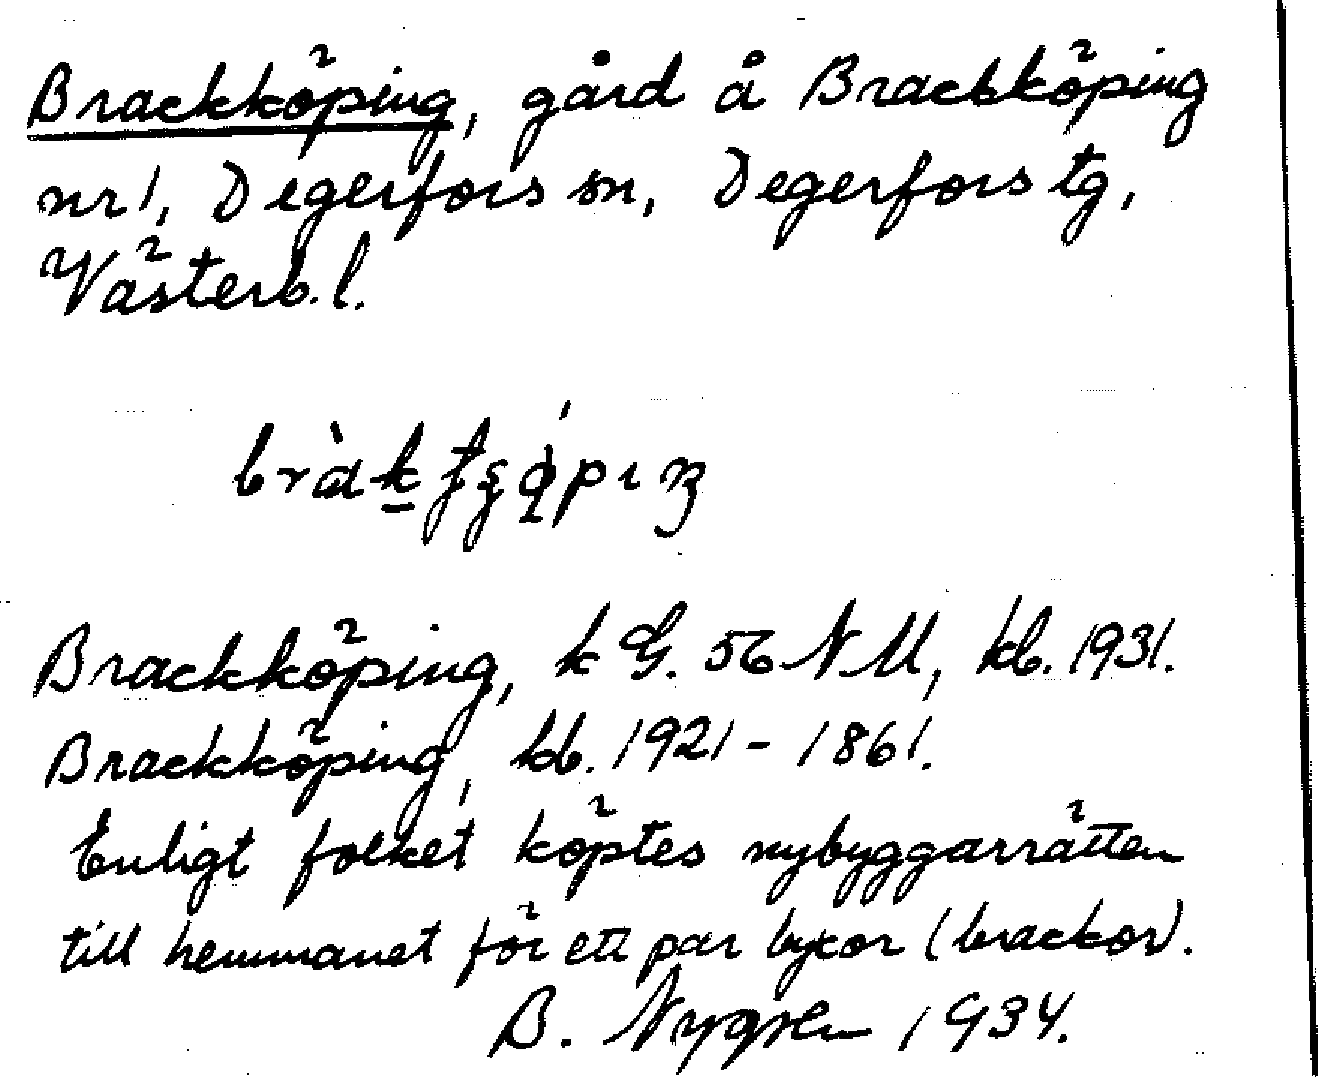 Brackköping, gård å Brackköping
nr 1, Degerfors sn, Degerfors tg,
Västerb. l.
Brackköping, k G. 56 NM, kb. 1931.
Brackköping, kb. 1921 - 1861.
Enligt folket köptes nybyggarrätten
till hemmanet för ett par byxor (brackor).
B. Nygren 1934.